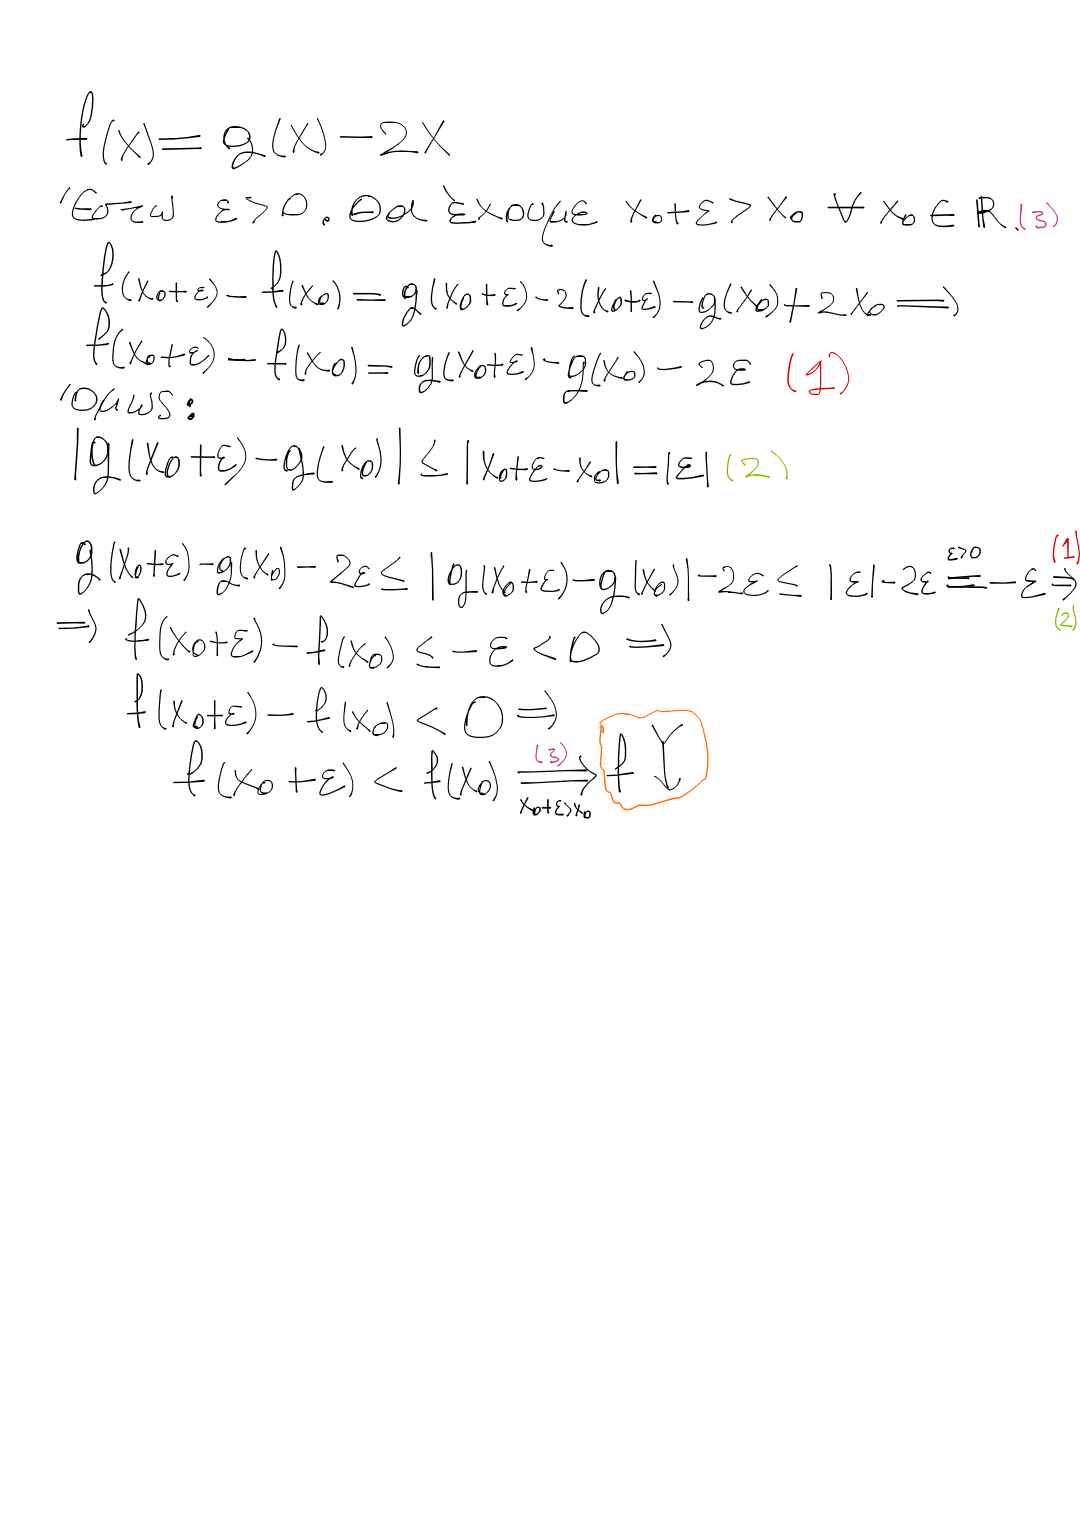 f(x) = g(x) - 2x
Έστω ε>0. Θα έχουμε x₀+ε > x₀ ∀ x₀ ∈ ℝ. (3)
f(x₀+ε) - f(x₀) = g(x₀+ε) - 2(x₀+ε) - g(x₀) + 2x₀ ⇒
f(x₀+ε) - f(x₀) = g(x₀+ε) - g(x₀) - 2ε (1)
Όμως:
|g(x₀+ε) - g(x₀)| ≤ |x₀+ε-x₀| = |ε| (2)
g(x₀+ε) - g(x₀) - 2ε ≤ |g(x₀+ε) - g(x₀)| - 2ε ≤ |ε| - 2ε =^{ε>0} -ε ⇒^{(1)}_{(2)}
⇒ f(x₀+ε) - f(x₀) ≤ -ε < 0 ⇒
f(x₀+ε) - f(x₀) < 0 ⇒
f(x₀+ε) < f(x₀) ⇒^{(3)}_{x₀+ε>x₀} f ↓